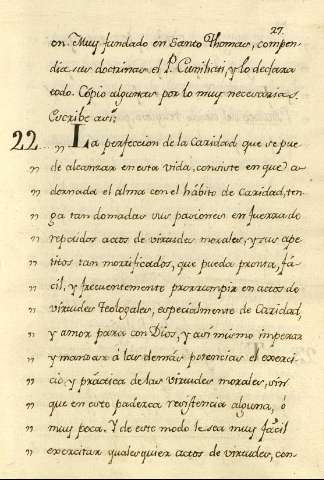 27.
on. Muy fundado en Santo Thomas, compen-
dia sus doctrinas el P. Cuniliati, y lo declara
todo. Copio algunas por lo muy necesarias.
Escribe asi:
22 ,, La perfeccion de la Caridad que se pue-
,, de alcanzar en esta vida, consiste en que a-
,, dornada el alma con el hábito de Caridad, ten-
,, ga tan domadas sus pasiones en fuerza de
,, repetidos actos de virtudes morales, y sus ape-
,, titos tan mortificados, que pueda pronta, fá-
,, cil, y frecuentemente prorrumpir en actos de
,, virtudes Teologales, especialmente de Caridad,
,, y amor para con Dios, y asi mismo imperar
,, y mandar á las demás potencias el exerci-
,, cio, y práctica de las virtudes morales, sin
,, que en esto padezca resistencia alguna, ó
,, muy poca. Y de este modo le sea muy fácil
,, exercitar qualesquier actos de virtudes, con-